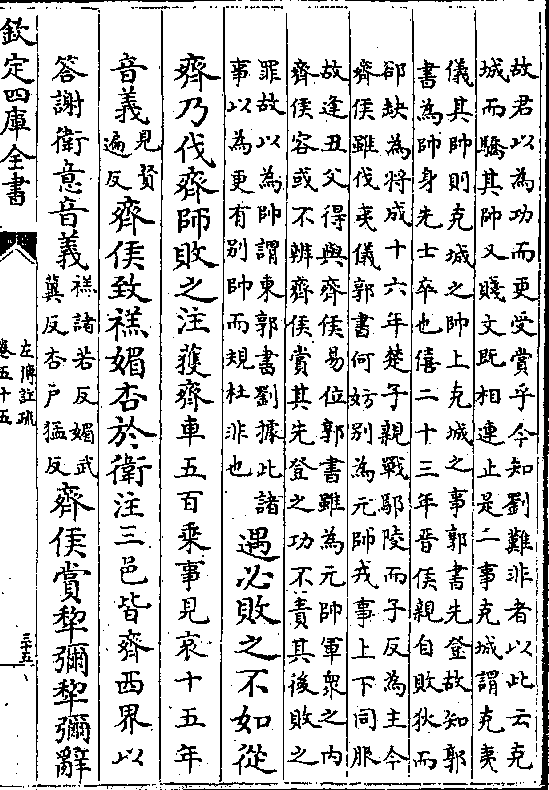 故君以為功而更受賞乎今知劉難非者以此云克
城而驕其帥又賤文既相連止是二事克城謂克夷
儀其帥則克城之帥上克城之事郭書先登故知郭
書為帥身先士卒也僖二十三年晉侯親自敗狄而
郤缺為將成十六年楚子親戰鄢陵而子反為主今
齊侯雖伐夷儀郭書何妨別為元帥戎事上下同服
故逢丑父得與齊侯易位郭書雖為元帥軍衆之内
齊侯容或不辨齊侯賞其先登之功不責其後敗之
罪故以為帥謂東郭書劉據此諸
事以為更有別帥而規杜非也
遇必敗之不如從
齊乃伐齊師敗之注蒦齊車五百乘事見哀十五年
音義
見賢
遍反
齊侯致禚媚杏於衛注三邑皆齊西界以
答謝衛意音義
禚諸若反媚武
冀反杏户猛反
齊侯賞犂彌犂彌辭
欽定四庫全書
左傳註疏
卷五十五
三十五